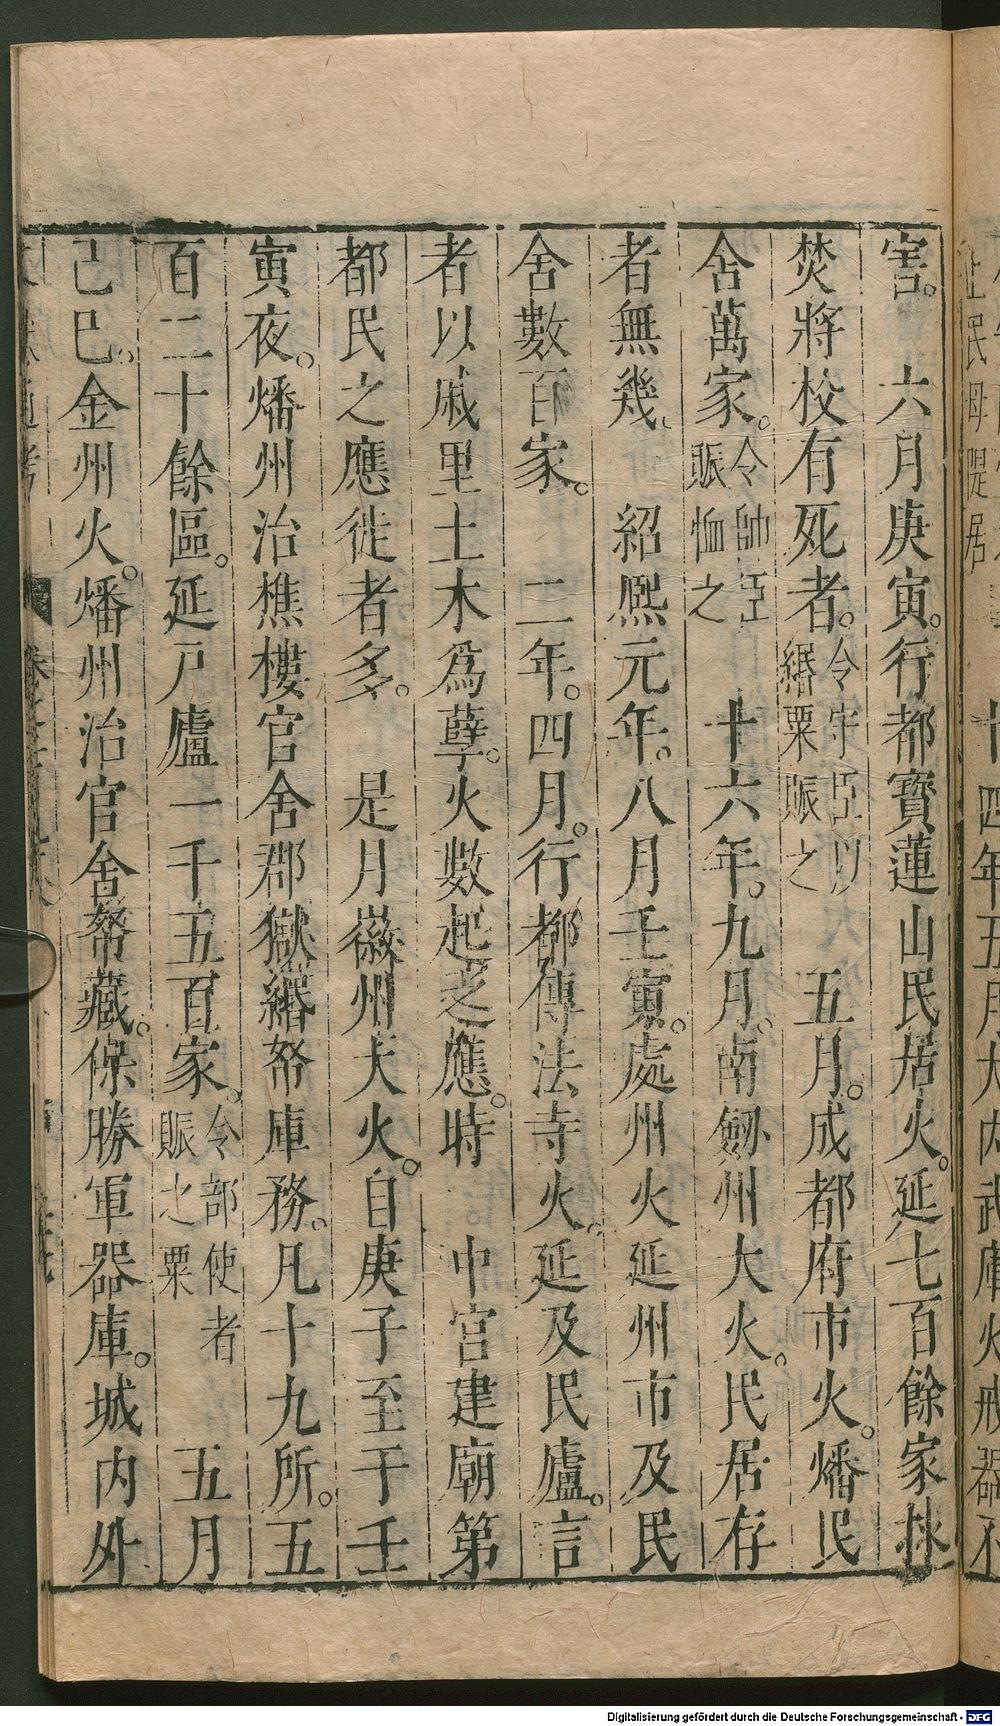 害。 六月庚寅。行都寶蓮山民居火。延七百餘家㧞
焚將校有死者。令守臣以緡粟賑之 五月。成都府市火。燔民
舍萬家。令帥臣賑恤之 十六年。九月。南劔州大火。民居存
者無幾。 紹熙元年。八月壬寅。處州火延州市及民
舍數百家。 二年。四月。行都傳法寺火。延及民廬。言
者以戚里土木爲孽。火數起之應。時 中宮建廟第
都民之應徙者多。 是月徽州大火。自庚子至于壬
寅夜。燔州治樵樓官舍郡獄緡帑庫務。凡十九所。五
百二十餘區。延戸廬一千五百家。令部使者賑之粟 五月
己巳。金州火。燔州治官舍帑藏。保勝軍器庫。城内外
Digitalisierung gefördert durch die Deutsche Forschungsgemeinschaft - DFG